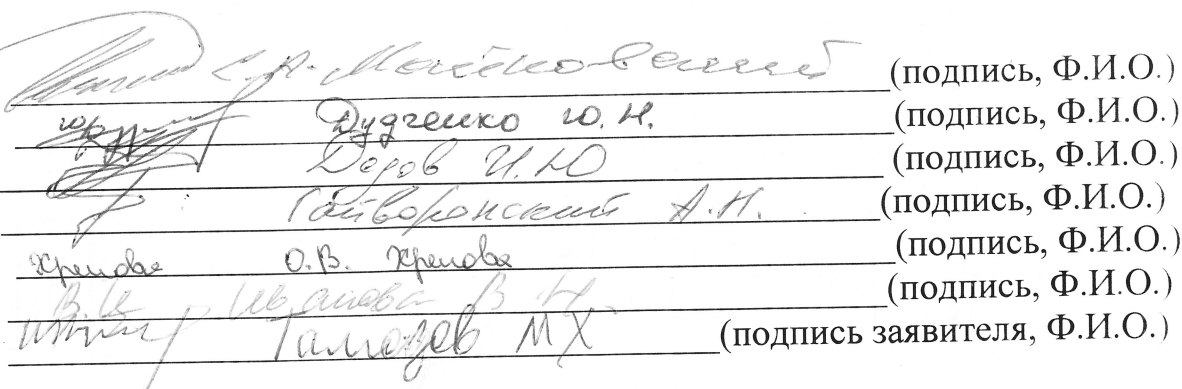 С.А. Майковский (подпись, Ф.И.О.)
Дудченко Ю.Н. (подпись, Ф.И.О.)
Дедов И.Ю (подпись, Ф.И.О.)
Гайворонский А.Н. (подпись, Ф.И.О.)
О.В. (подпись, Ф.И.О.)
В.И. Иванова В И (подпись, Ф.И.О.)
М Х (подпись заявителя, Ф.И.О.)